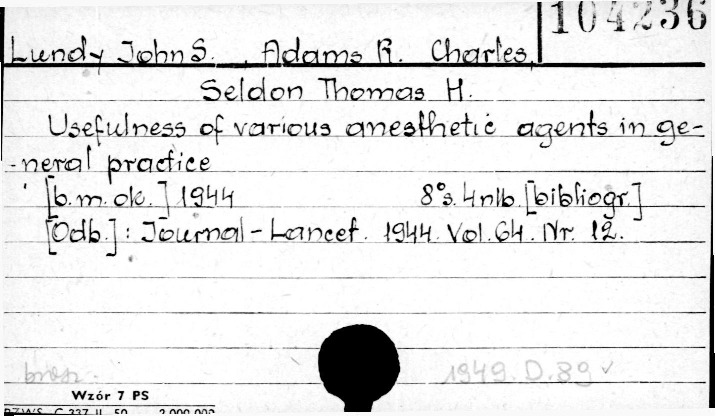 104236
Lundy John S., Adams R. Charles,
Seldon Thomas H.
Usefulness of various anesthetic agents in ge-
-neral practice
[b.m.dr.] 1944 8°s. 4 nlb. [bibliogr.]
[Odb.]: Journal-Lancet. 1944. Vol. 64. Nr. 12.
brosz. 1949. D. 89 ✓
Wzór 7 PS
PZWS C-337 II. 50 2.000.000